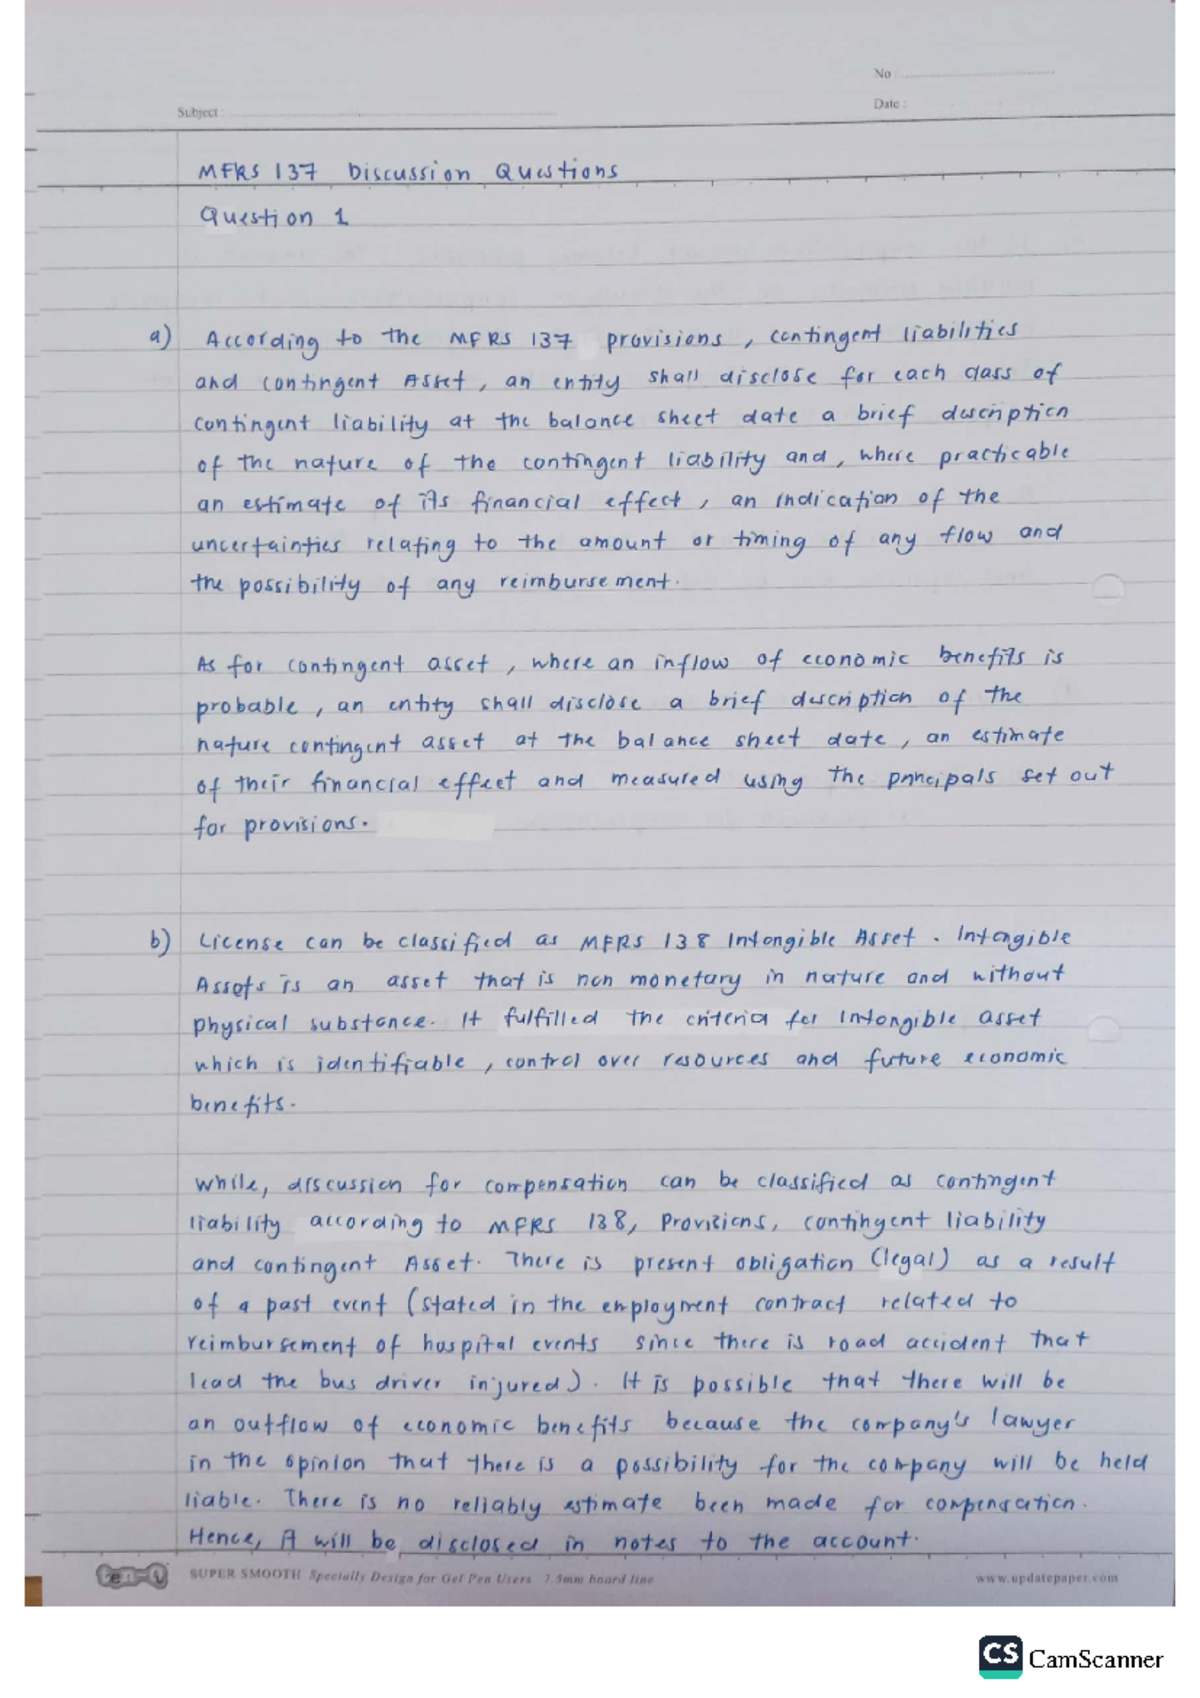 No :
Subject :
Date :
MFRS 137 Discussion Questions
Question 1
a) According to the MFRS 137 provisions, contingent liabilities
and contingent Asset, an entity shall disclose for each class of
contingent liability at the balance sheet date a brief description
of the nature of the contingent liability and, where practicable
an estimate of its financial effect, an indication of the
uncertainties relating to the amount or timing of any flow and
the possibility of any reimbursement.
As for contingent asset, where an inflow of economic benefits is
probable, an entity shall disclose a brief description of the
nature contingent asset at the balance sheet date, an estimate
of their financial effect and measured using the principals set out
for provisions.
b) License can be classified as MFRS 138 Intangible Asset. Intangible
Assets is an asset that is non monetary in nature and without
physical substance. It fulfilled the criteria for Intangible asset
which is identifiable, control over resources and future economic
benefits.
While, discussion for compensation can be classified as contingent
liability according to MFRS 138, Provisions, contingent liability
and contingent Asset. There is present obligation (legal) as a result
of a past event (stated in the employment contract related to
reimbursement of hospital events since there is road accident that
lead the bus driver injured). It is possible that there will be
an outflow of economic benefits because the company's lawyer
in the opinion that there is a possibility for the company will be held
liable. There is no reliably estimate been made for compensation.
Hence, it will be disclosed in notes to the account.
SUPER SMOOTH Specially Design for Gel Pen Users 7.5mm board line
www.updatepaper.com
CS CamScanner